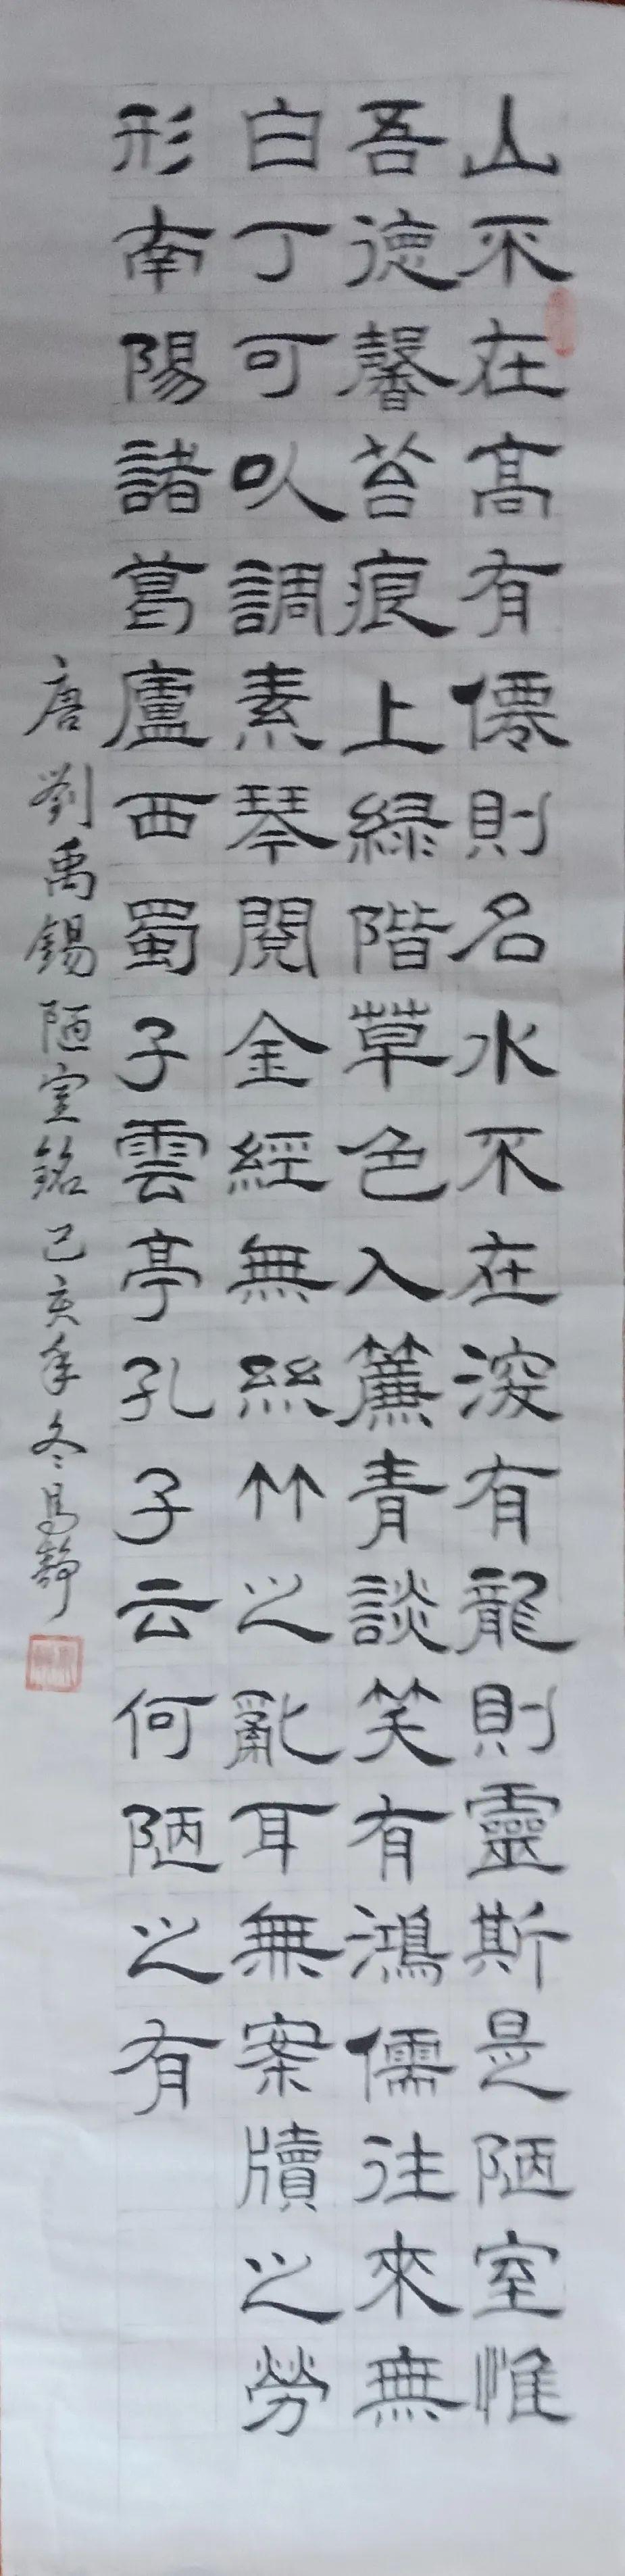 山不在高有僊則名水不在深有龍則靈斯是陋室惟
吾德馨苔痕上綠階草色入簾青談笑有鴻儒往來無
白丁可以調素琴閱金經無絲竹之亂耳無案牘之勞
形南陽諸葛廬西蜀子雲亭孔子云何陋之有
唐劉禹錫陋室銘己亥年冬馬靜